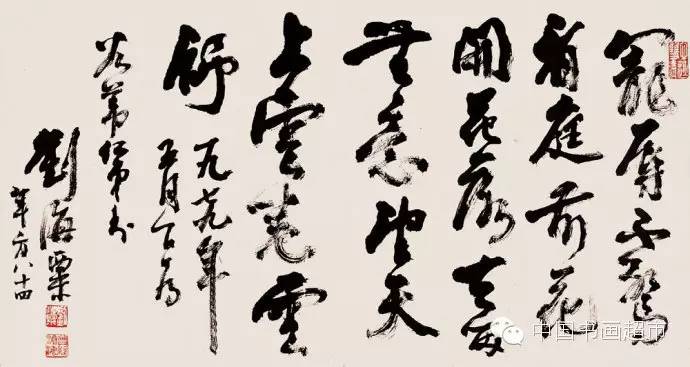 寵辱不驚
看庭前花
開花落去留
無意望天
上雲卷雲
舒
一九七九年
五月為
谷葦仁弟書
劉海粟
年方八十四
中国书画超市